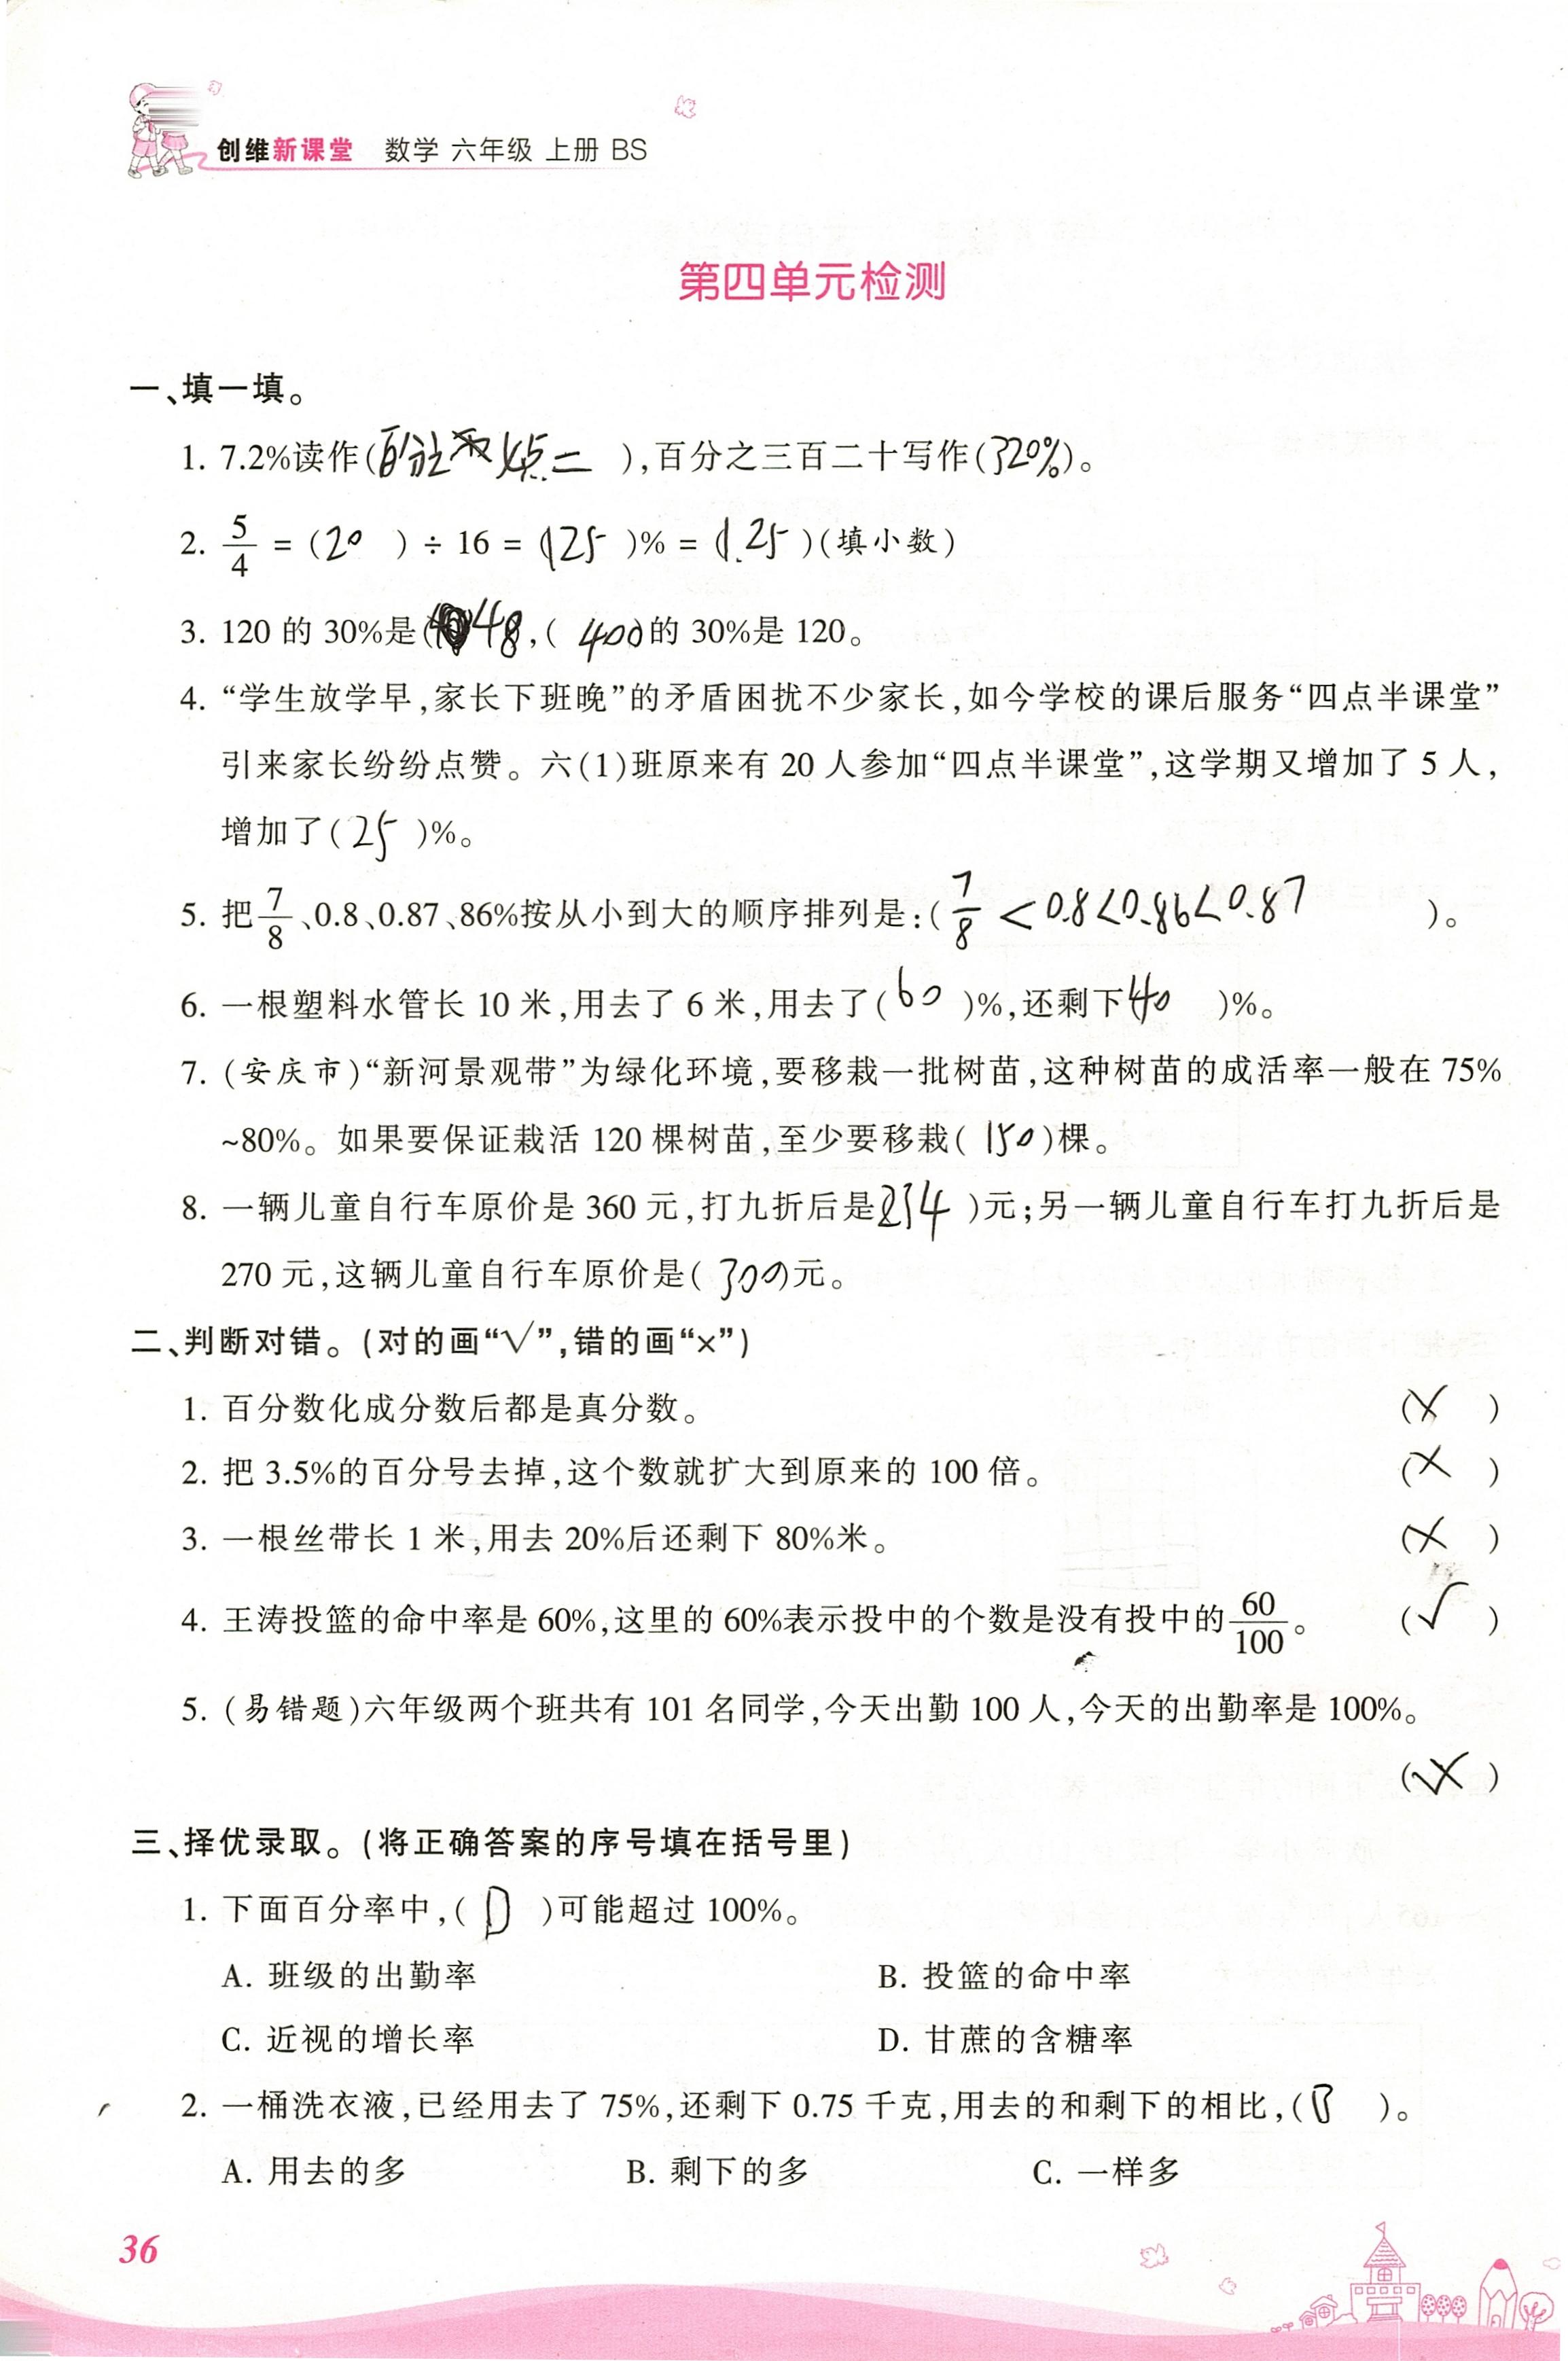 创维新课堂 数学 六年级 上册 BS
第四单元检测
一、填一填。
1. 7.2%读作(百分之七点二),百分之三百二十写作(320%)。
2. 5/4 = (20) ÷ 16 = (125)% = (1.25)(填小数)
3. 120 的 30%是(48,(400)的 30%是 120。
4. “学生放学早,家长下班晚”的矛盾困扰不少家长,如今学校的课后服务“四点半课堂”
引来家长纷纷点赞。六(1)班原来有 20 人参加“四点半课堂”,这学期又增加了 5 人,
增加了(25)%。
5. 把7/8、0.8、0.87、86%按从小到大的顺序排列是:(7/8 < 0.8<0.86<0.87)。
6. 一根塑料水管长 10 米,用去了 6 米,用去了(60)%,还剩下(40)%。
7. (安庆市)“新河景观带”为绿化环境,要移栽一批树苗,这种树苗的成活率一般在 75%
~80%。如果要保证栽活 120 棵树苗,至少要移栽(150)棵。
8. 一辆儿童自行车原价是 360 元,打九折后是234)元;另一辆儿童自行车打九折后是
270 元,这辆儿童自行车原价是(300)元。
二、判断对错。(对的画“√”,错的画“×”)
1. 百分数化成分数后都是真分数。 (×)
2. 把 3.5%的百分号去掉,这个数就扩大到原来的 100 倍。 (×)
3. 一根丝带长 1 米,用去 20%后还剩下 80%米。 (×)
4. 王涛投篮的命中率是 60%,这里的 60%表示投中的个数是没有投中的60/100。 (√)
5. (易错题)六年级两个班共有 101 名同学,今天出勤 100 人,今天的出勤率是 100%。
(×)
三、择优录取。(将正确答案的序号填在括号里)
1. 下面百分率中,(D)可能超过 100%。
A. 班级的出勤率 B. 投篮的命中率
C. 近视的增长率 D. 甘蔗的含糖率
2. 一桶洗衣液,已经用去了 75%,还剩下 0.75 千克,用去的和剩下的相比,(B)。
A. 用去的多 B. 剩下的多 C. 一样多
36